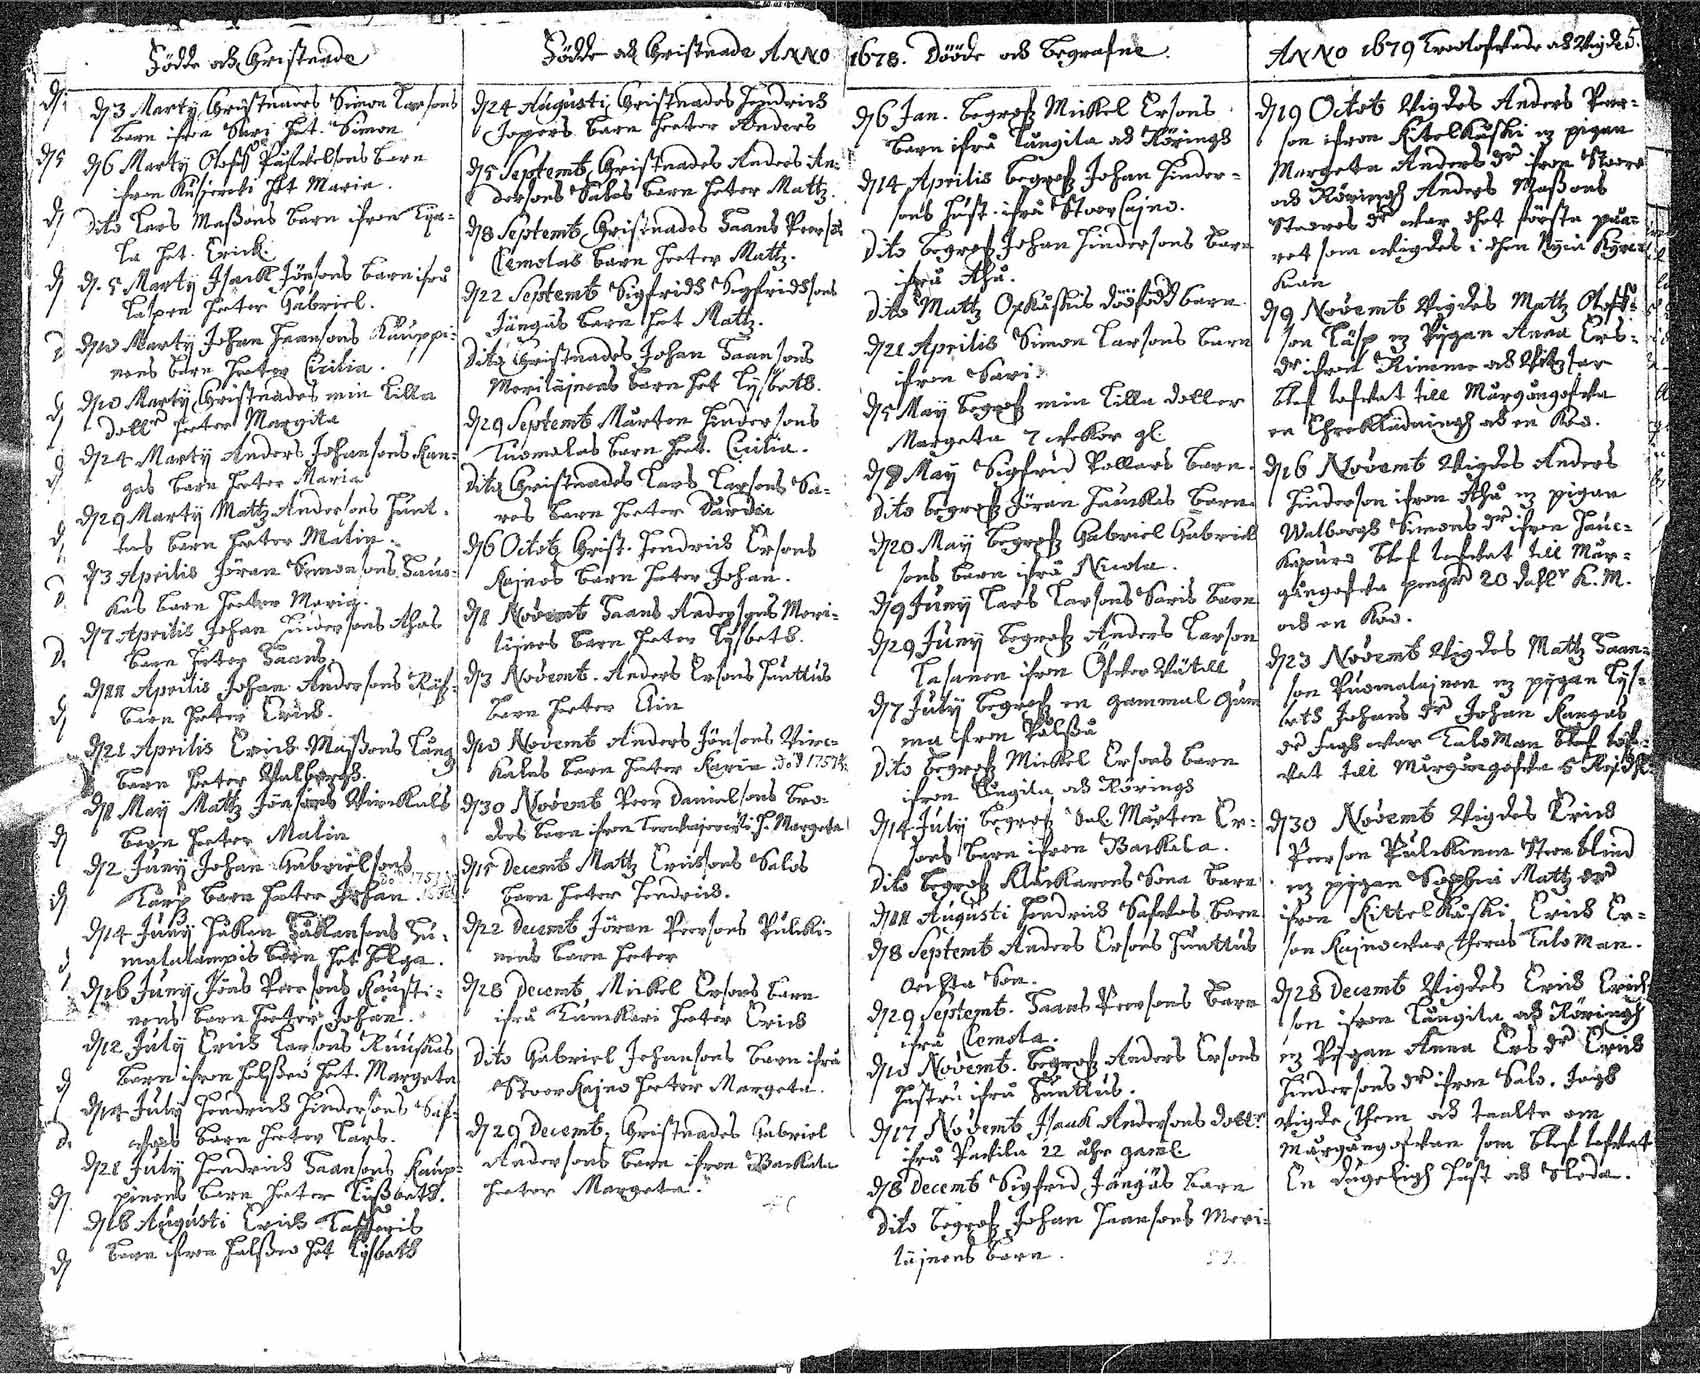 Födde och Christnade
D/3 Marty Christnades Simon Larsons
barn ifrån Sari het. Simon
D/6 Marty Oloff Påfvelsons barn
ifrån het Maria.
Dito Lars Maßons barn ifrån Kya-
la het. Erick
D/. 5 Marty Isack Jönsons barn ifrå
Laspen heeter Gabriel.
D/10 Marty Johan Haansons Kauppi-
nens barn heeter Cicilia.
D/10 Marty Christnades min Lilla
dotter heeter Margita
D/24 Marty Anders Johansons Kan-
gas barn heeter Maria
D/29 Marty Mattz Andersons Hunt-
tus barn heeter Malin.
D/3 Aprilis Jöran Simonsons Hauc-
kas barn heeter Maria.
D/7 Aprilis Johan Hindersons Ahos
barn heeter Haans.
D/11 Aprilis Johan Andersons Räf-
barn heeter Erich.
D/21 Aprilis Erich Maßons Lång
barn heeter Valborgh.
D/1 May Mattz Jönsons Virckals
barn heeter Malin
D/2 Juny Johan Gabrielsons
Karp barn heeter Johan.
D/14 Juny Håkan Håkansons Hu-
malalampis barn het Helga.
D/16 Juny Jöns Peersons Kausti-
nens barn heeter Johan.
D/12 July Erich Larsons Ruuskas
barn ifrån Halßoo het. Margeta
D/14 July Hendrich Hindersons Saf-
vos barn heeter Lars.
D/21 July Hendrich Haansons Kaup-
pinens barn heeter Lißbeth.
D/18 Augusti Erich Casperis
barn ifrån Halßoo het Lysbeth
Födde och Christnade ANNO
D/24 Augusti Christnades Hendrich
Jopers barn heeter Anders
D/5 Septemb Christnades Anders An-
dersons Salos barn heter Mattz.
D/8 Septemb Christnades Haans Peersons
Cemolas barn heeter Mattz.
D/22 Septemb Sigfridh Sigfridhsons
Jängäs barn het Mattz.
Dito Christnades Johan Haansons
Meriläinens barn het Lysbeth.
D/29 Septemb Mårten Hindersons
Tuomolas barn het. Cicilia.
Dito Christnades Lars Larsons Sa-
res barn heeter Dårdei
D/6 Octob Christ. Hendrich Ersons
Kainos barn heter Johan.
D/1 Novemb Haans Andersons Meri-
läines barn heeter Lysbeth.
D/3 Novemb. Anders Ersons Hunttus
barn heeter Elin
D/10 Novemb Anders Jönsons Virc-
kalas barn heeter Karin död 1757
D/30 Novemb Peer Danielsons bro-
ders barn ifrån h. Margeta
D/15 Decemb Mattz Erichsons Salos
barn heeter Hendrich.
D/22 Decemb Jöran Peersons Pulcki-
nens barn heeter
D/28 Decemb Mickel Ersons barn
ifrå Tunckari heeter Erich
Dito Gabriel Johansons barn ifrå
Stoor Kaino heeter Margeta.
D/29 Decemb. Christnades Gabriel
Andersons barn ifrån Backala
heeter Margeta.
1678. Dööde och begrafne.
D/6 Jan. begrofz Mickel Ersons
barn ifrå Tungila och Rörings
D/14 Aprilis begrofz Johan Hinder-
sons hust. ifrå Stoor Caino.
Dito begrofz Johan Hindersons barn
ifrå Aho.
Dito Mattz Orkuskis dödfödd barn.
D/21 Aprilis Simon Larsons barn
ifrån Sari.
D/5 May begrofz min Lilla dotter
Margeta 7 vekor gl.
D/9 May Sigfrid Pollars barn.
Dito begrofz Jöran Hauckas barn
D/20 May begrofz Gabriel Gabriel
sons barn ifrå Nicola.
D/9 Juny Lars Larsons Saris barn
D/29 Juny begrofz Anders Larson
Casanen ifrån Öfver Vätell
D/7 July begrofz en gammal gum
ma ifrån Pålßå
Dito begrofz Mickel Ersons barn
ifrån Tungila och Rörings
D/14 July begrofz Sal. Mårten Er-
sons barn ifrån Backala.
Dito begrofz Kluckarens Sona barn
D/11 Augusti Hendrich Safvos barn
D/8 Septemb Anders Ersons Hunttus
Oechta Son.
D/29 Septemb. Haans Peersons barn
ifrå Cemola.
D/10 Novemb. begrofz Anders Ersons
Hustru ifrå Hunttus.
D/17 Novemb Isack Andersons dotter
ifrå Pavila 22 åhr gaml.
D/8 Decemb Sigfrid Jängäs barn
Dito begrofz Johan Haansons Meri-
läinens barn.
ANNO 1679 Troolofvade och Vigde 5.
D/19 Octob Vigdes Anders Peer-
son ifrån Kitelkuski m pigan
Margeta Anders dr ifrån Stoore
och Röringh Anders Maßons
Stoores dr var thet första paa-
ret som vigdes i then Nyia Kyrc
kian
D/9 Novemb Vigdes Mattz Oloff-
son Läsp m Pygan Anna Ers-
dr ifrån Rimme och Vitzsar
blef lofvat till Mårgongofva
en Ehreklädningh och en Koo.
D/16 Novemb Vigdes Anders
Hinderson ifrån Aho m pigan
Walborgh Simons dr ifrån Hauc-
kapuro blef lofvat till Mår-
gongofva penger 20 dahlr K.M.
och en Koo.
D/23 Novemb Vigdes Mattz Haan-
son Puomalainen m pygan Lys-
beth Johans dr Johan Kangas
dr Jagh var Taloman blef lof-
vat till Mårgongofva 5 Rijxdr.
D/30 Novemb Vigdes Erich
Peerson Pulckinen Steenblind
m pygan Sophia Mattz dr
ifrån Kittelkuski Erich Er-
son Kaino var theras Taloman.
D/28 Decemb Vigdes Erich Erich
son ifrån Tungila och Röringh
m Pygan Anna Ers dr Erich
Hindersons dr ifrån Salo. Jagh
vigde them och taalte om
Mårgongofvan som blef lofvat
En dugeligh Häst och Sleda.